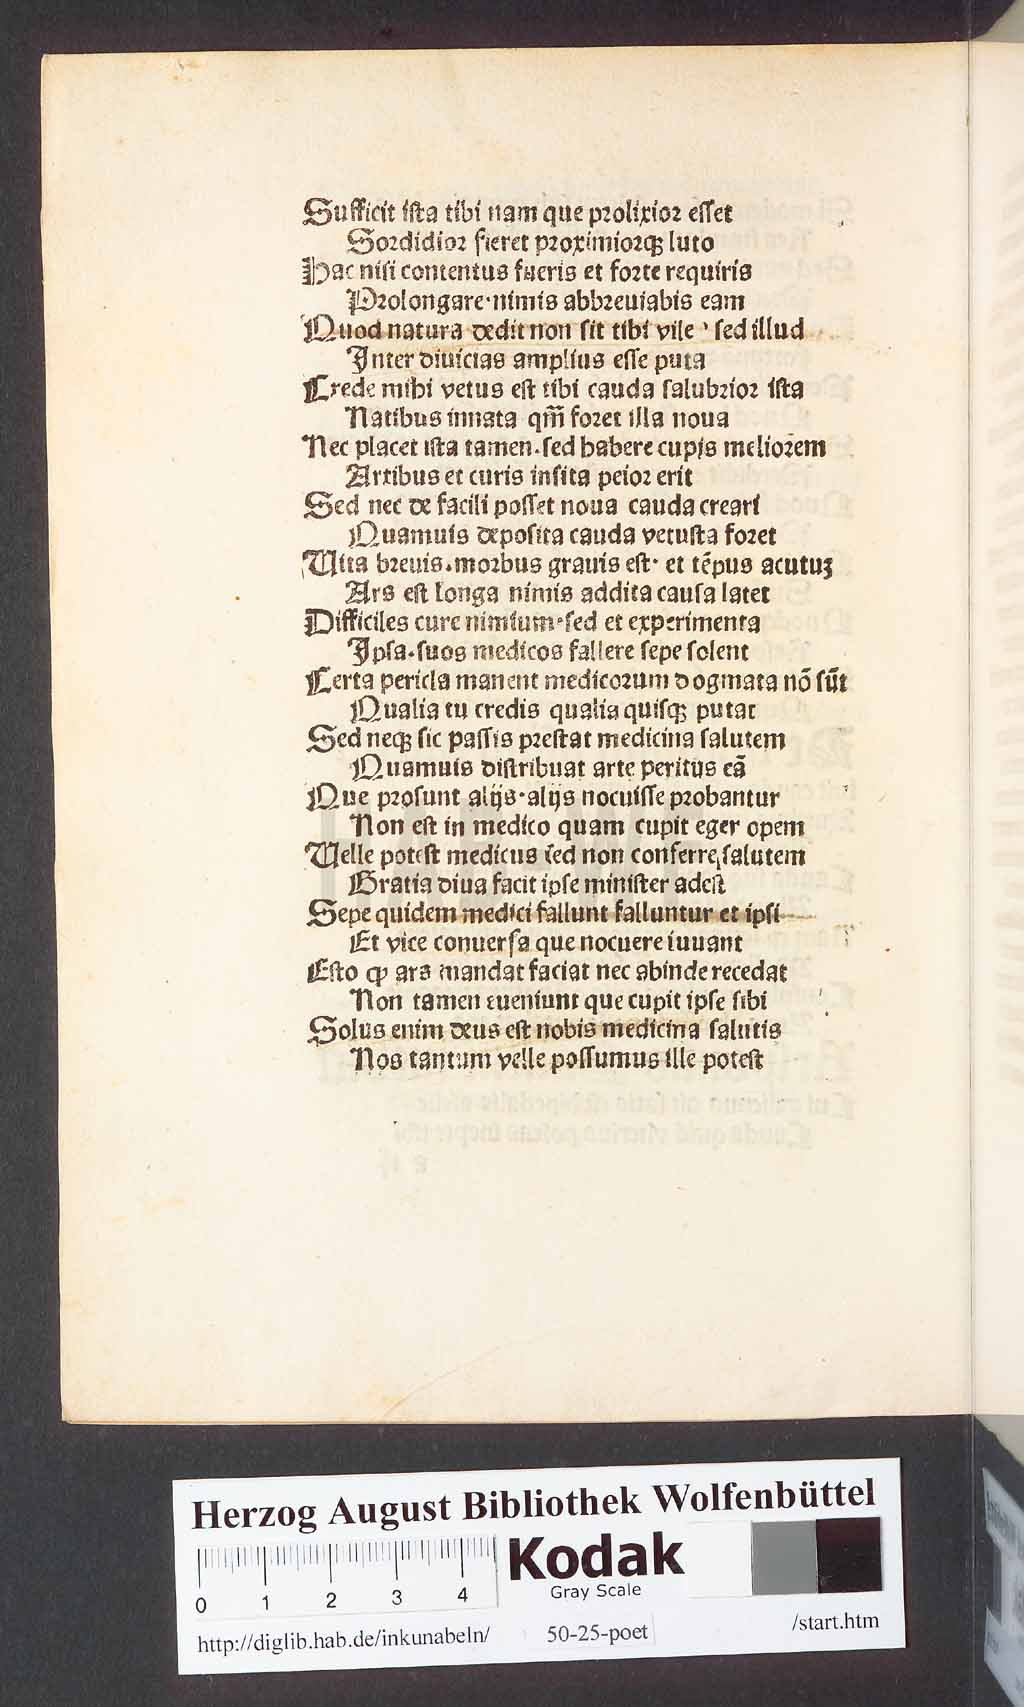 Sufficit ista tibi nam que prolixior esset
Sordidior fieret proximiorqꝫ luto
Hac nisi contentus fueris et forte requiris
Prolongare·nimis abbreuiabis eam
Quod natura dedit non sit tibi vile · sed illud
Inter diuicias amplius esse puta
Crede mihi vetus est tibi cauda salubrior ista
Natibus innata qm̄ foret illa noua
Nec placet ista tamen·sed habere cupis meliorem
Artibus et curis insita peior erit
Sed nec de facili posset noua cauda creari
Quamuis deposita cauda vetusta foret
Vita breuis·morbus grauis est· et tēpus acutuꝫ
Ars est longa nimis addita causa latet
Difficiles cure nimium·sed et experimenta
Ipsa·suos medicos fallere sepe solent
Certa pericla manent medicorum dogmata nō sūt
Qualia tu credis qualia quisqꝫ putat
Sed neqꝫ sic passis prestat medicina salutem
Quamuis distribuat arte peritus eā
Que prosunt alijs·alijs nocuisse probantur
Non est in medico quam cupit eger opem
Velle potest medicus sed non conferre salutem
Gratia diua facit ipse minister adest
Sepe quidem medici fallunt falluntur et ipsi
Et vice conuersa que nocuere iuuant
Esto ꝙ ars mandat faciat nec abinde recedat
Non tamen eueniunt que cupit ipse sibi
Solus enim deus est nobis medicina salutis
Nos tantum velle possumus ille potest
HAB-WF
Herzog August Bibliothek Wolfenbüttel
Kodak
Gray Scale
0 1 2 3 4
http://diglib.hab.de/inkunabeln/ 50-25-poet /start.htm